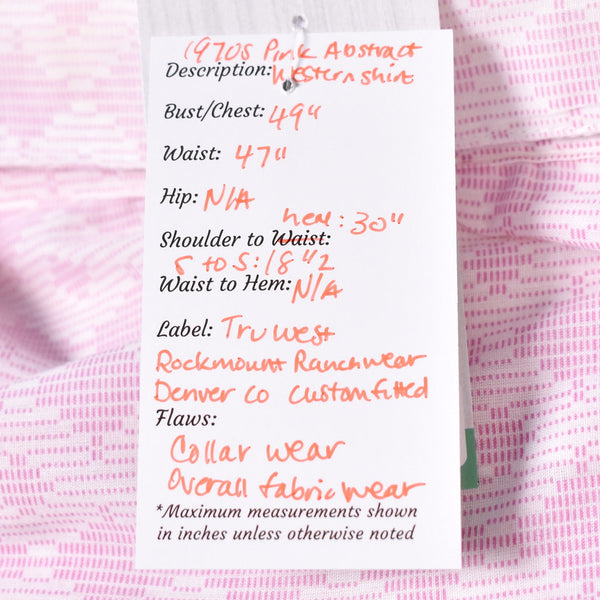 1970s Pink Abstract
Description: Western shirt
Bust/Chest: 49"
Waist: 47"
Hip: N/A
hem: 30"
Shoulder to Waist:
S to S: 18 "2
Waist to Hem: N/A
Label: Tru West
Rockmount Ranchwear
Denver Co Custom fitted
Flaws:
Collar wear
Overall fabric wear
*Maximum measurements shown
in inches unless otherwise noted